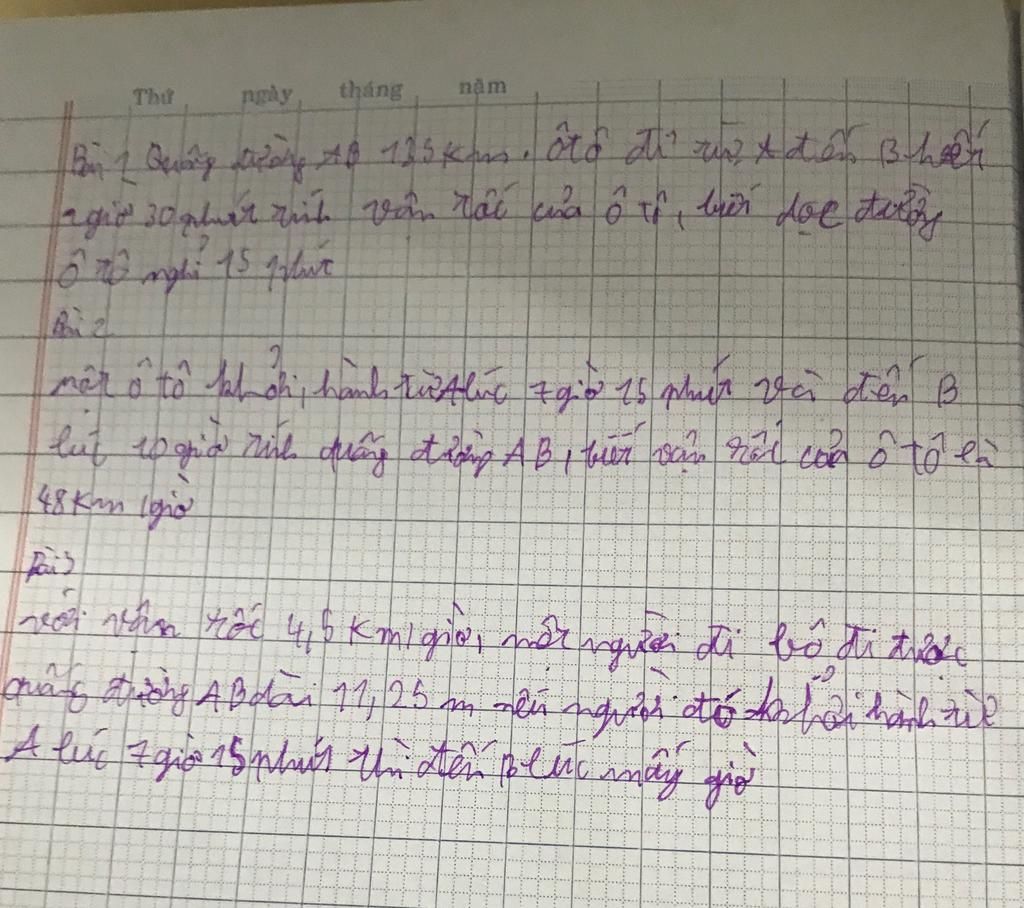 Thứ ngày tháng năm
Bài 1 Quãng đường AB 135 km. Ôtô đi từ A đến B hết
giờ 30 phút tính vận tốc của ô tô, biết dọc đường
ô tô nghỉ 15 phút
Bài 2
một ô tô khởi, hành từ A lúc 7 giờ 15 phút và đến B
lúc 10 giờ tính quãng đường AB, biết vận tốc của ô tô là
48 km/giờ
Bài 3
với vận tốc 4,5 km/giờ, một người đi bộ đi được
quãng đường AB dài 11,25 m nếu người đó khởi hành từ
A lúc 7 giờ 15 phút thì đến B lúc mấy giờ